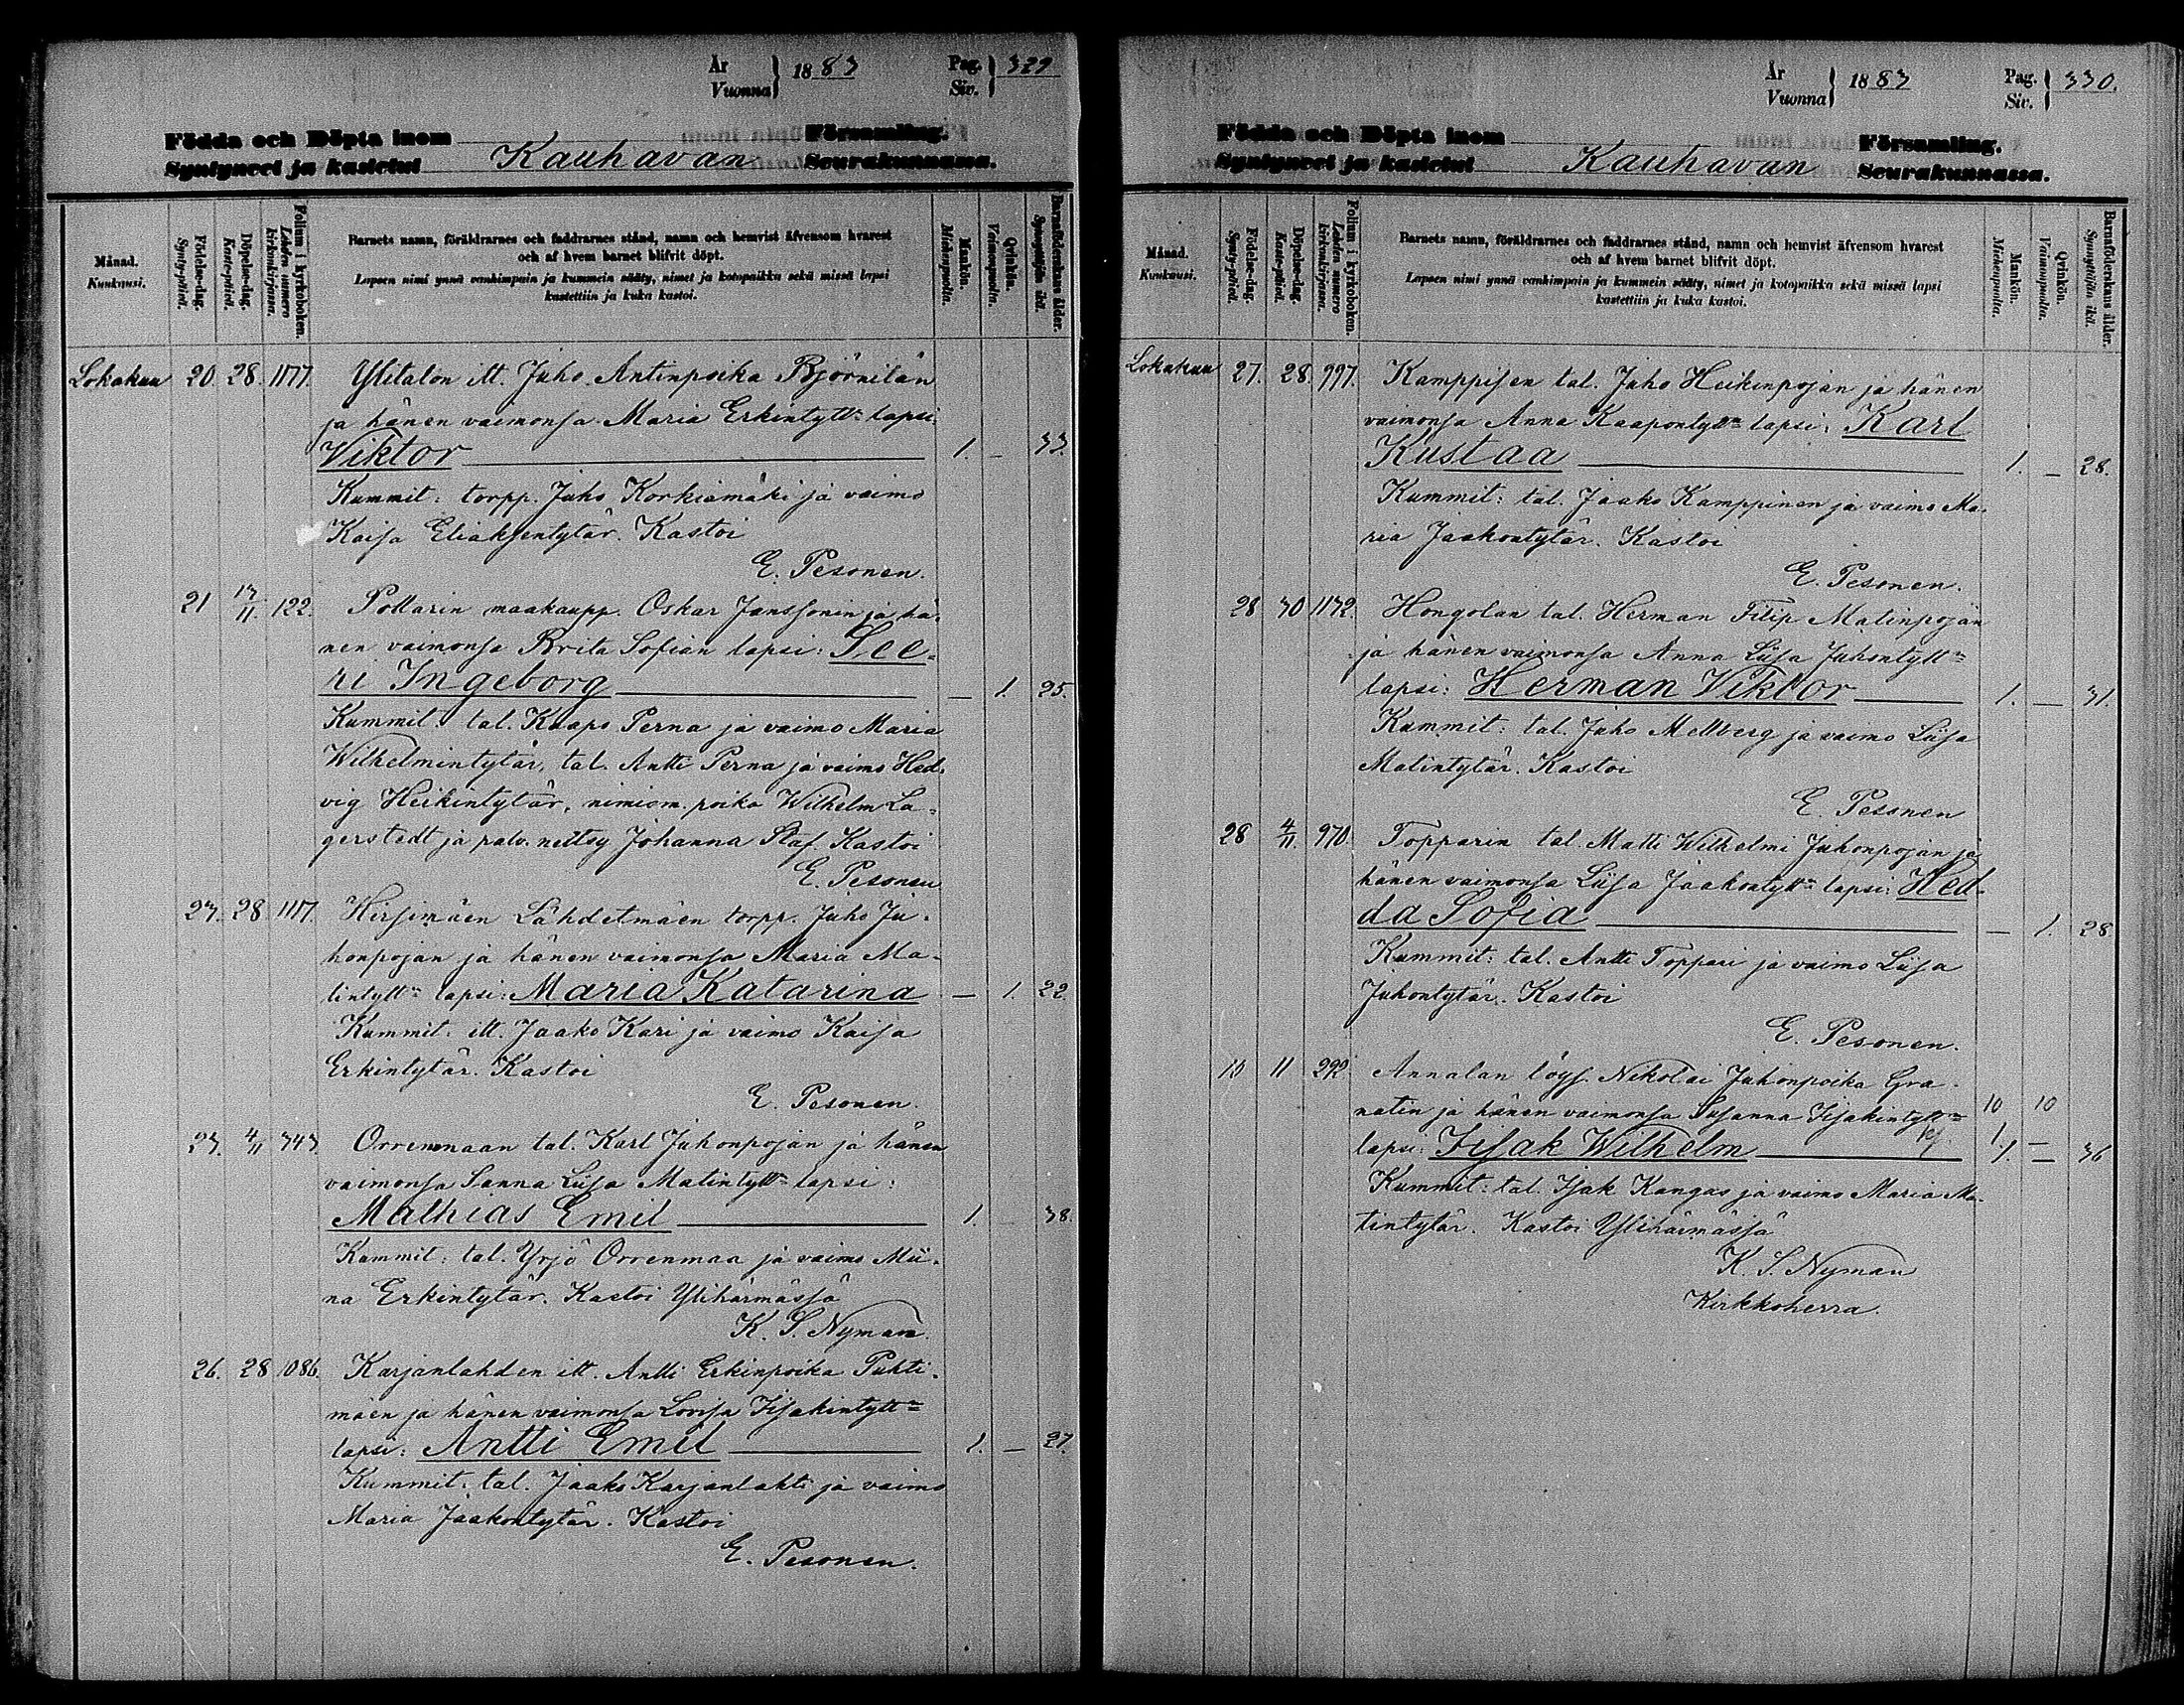 År
Vuonna } 1883
Pag.
Siv. } 329
Födda och Döpta inom Församling.
Syntyneet ja kastetut Kauhavan Seurakunnassa.
Månad.
Kuukausi.
Födelse-dag.
Synty-päivä.
Döpelse-dag.
Kaste-päivä.
Folium i kyrkoboken.
Lehden numero kirkonkirjassa.
Barnets namn, föräldrarnes och faddrarnes stånd, namn och hemvist äfvensom hvarest
och af hvem barnet blifvit döpt.
Lapsen nimi ynnä vanhimpain ja kummein sääty, nimet ja kotopaikka sekä missä lapsi
kastettiin ja kuka kastoi.
Mankön.
Miehenpuolta.
Qvinkön.
Vaimonpuolta.
Barnaföderskans ålder.
Synnyttäjän ikä.
Lokakuu 20. 28. 1177. Ylitalon itt. Juho Antinpoika Björnilän
ja hänen vaimonsa Maria Erkintytt:n lapsi:
Viktor 1. – 33.
Kummit: torpp. Juho Korkiamäki ja vaimo
Kaisa Eliaksentytär. Kastoi
E. Pesonen.
21 13/11. 122. Pollarin maakaupp. Oskar Janssonin ja hä-
nen vaimonsa Brita Sofian lapsi: See-
ri Ingeborg – 1. 25.
Kummit: tal. Kaapo Perna ja vaimo Maria
Wilhelmintytär, tal. Antti Perna ja vaimo Hed-
vig Heikintytär, nimism. poika Wilhelm La-
gerstedt ja palv. neitsy Johanna Staf. Kastoi
E. Pesonen
23. 28. 1117. Hirsimäen Lähdetmäen torpp. Juho Ju-
honpojan ja hänen vaimonsa Maria Ma-
tintytt:n lapsi: Maria Katarina – 1. 22.
Kummit: itt. Jaako Kari ja vaimo Kaisa
Erkintytär. Kastoi
E. Pesonen.
23. 4/11 343 Orrenmaan tal. Karl Juhonpojan ja hänen
vaimonsa Sanna Liisa Matintytt:n lapsi:
Mathias Emil 1. – 38.
Kummit: tal. Yrjö Orrenmaa ja vaimo Mii-
na Erkintytär. Kastoi Ylihärmässä
K. S. Nyman.
26. 28 1086. Karjanlahden itt. Antti Erkinpoika Puhti-
mäen ja hänen vaimonsa Lovisa Iisakintytt:n
lapsi: Antti Emil 1. – 27.
Kummit: tal. Jaako Karjanlahti ja vaimo
Maria Jaakontytär. Kastoi
E. Pesonen.
År
Vuonna } 1883
Pag.
Siv. } 330.
Födda och Döpta inom Församling.
Syntyneet ja kastetut Kauhavan Seurakunnassa.
Månad.
Kuukausi.
Födelse-dag.
Synty-päivä.
Döpelse-dag.
Kaste-päivä.
Folium i kyrkoboken.
Lehden numero kirkonkirjassa.
Barnets namn, föräldrarnes och faddrarnes stånd, namn och hemvist äfvensom hvarest
och af hvem barnet blifvit döpt.
Lapsen nimi ynnä vanhimpain ja kummein sääty, nimet ja kotopaikka sekä missä lapsi
kastettiin ja kuka kastoi.
Mankön.
Miehenpuolta.
Qvinkön.
Vaimonpuolta.
Barnaföderskans ålder.
Synnyttäjän ikä.
Lokakuu 27. 28. 997. Kamppisen tal. Juho Heikinpojan ja hänen
vaimonsa Anna Kaapontytt:n lapsi: Karl
Kustaa 1. – 28.
Kummit: tal. Jaako Kamppinen ja vaimo Ma-
ria Jaakontytär. Kastoi
E. Pesonen.
28 30 1132. Hongolan tal. Herman Filip Matinpojan
ja hänen vaimonsa Anna Liisa Juhontytt:n
lapsi: Herman Viktor 1. – 31.
Kummit: tal. Juho Mellberg ja vaimo Liisa
Matintytär. Kastoi
E. Pesonen
28 4/11. 970. Topparin tal. Matti Wilhelmi Juhonpojan ja
hänen vaimonsa Liisa Jaakontytt:n lapsi: Hed-
da Sofia – 1. 28.
Kummit: tal. Antti Toppari ja vaimo Liisa
Juhontytär. Kastoi
E. Pesonen.
10 11 292 Annalan löys. Nikolai Juhonpoika Gra-
natin ja hänen vaimonsa Susanna Iisakintytt:n 10 10
lapsi: Iisak Wilhelm 1. – 36
Kummit: tal. Isak Kangas ja vaimo Maria Ma-
tintytär. Kastoi Ylihärmässä
K. S. Nyman
Kirkkoherra.